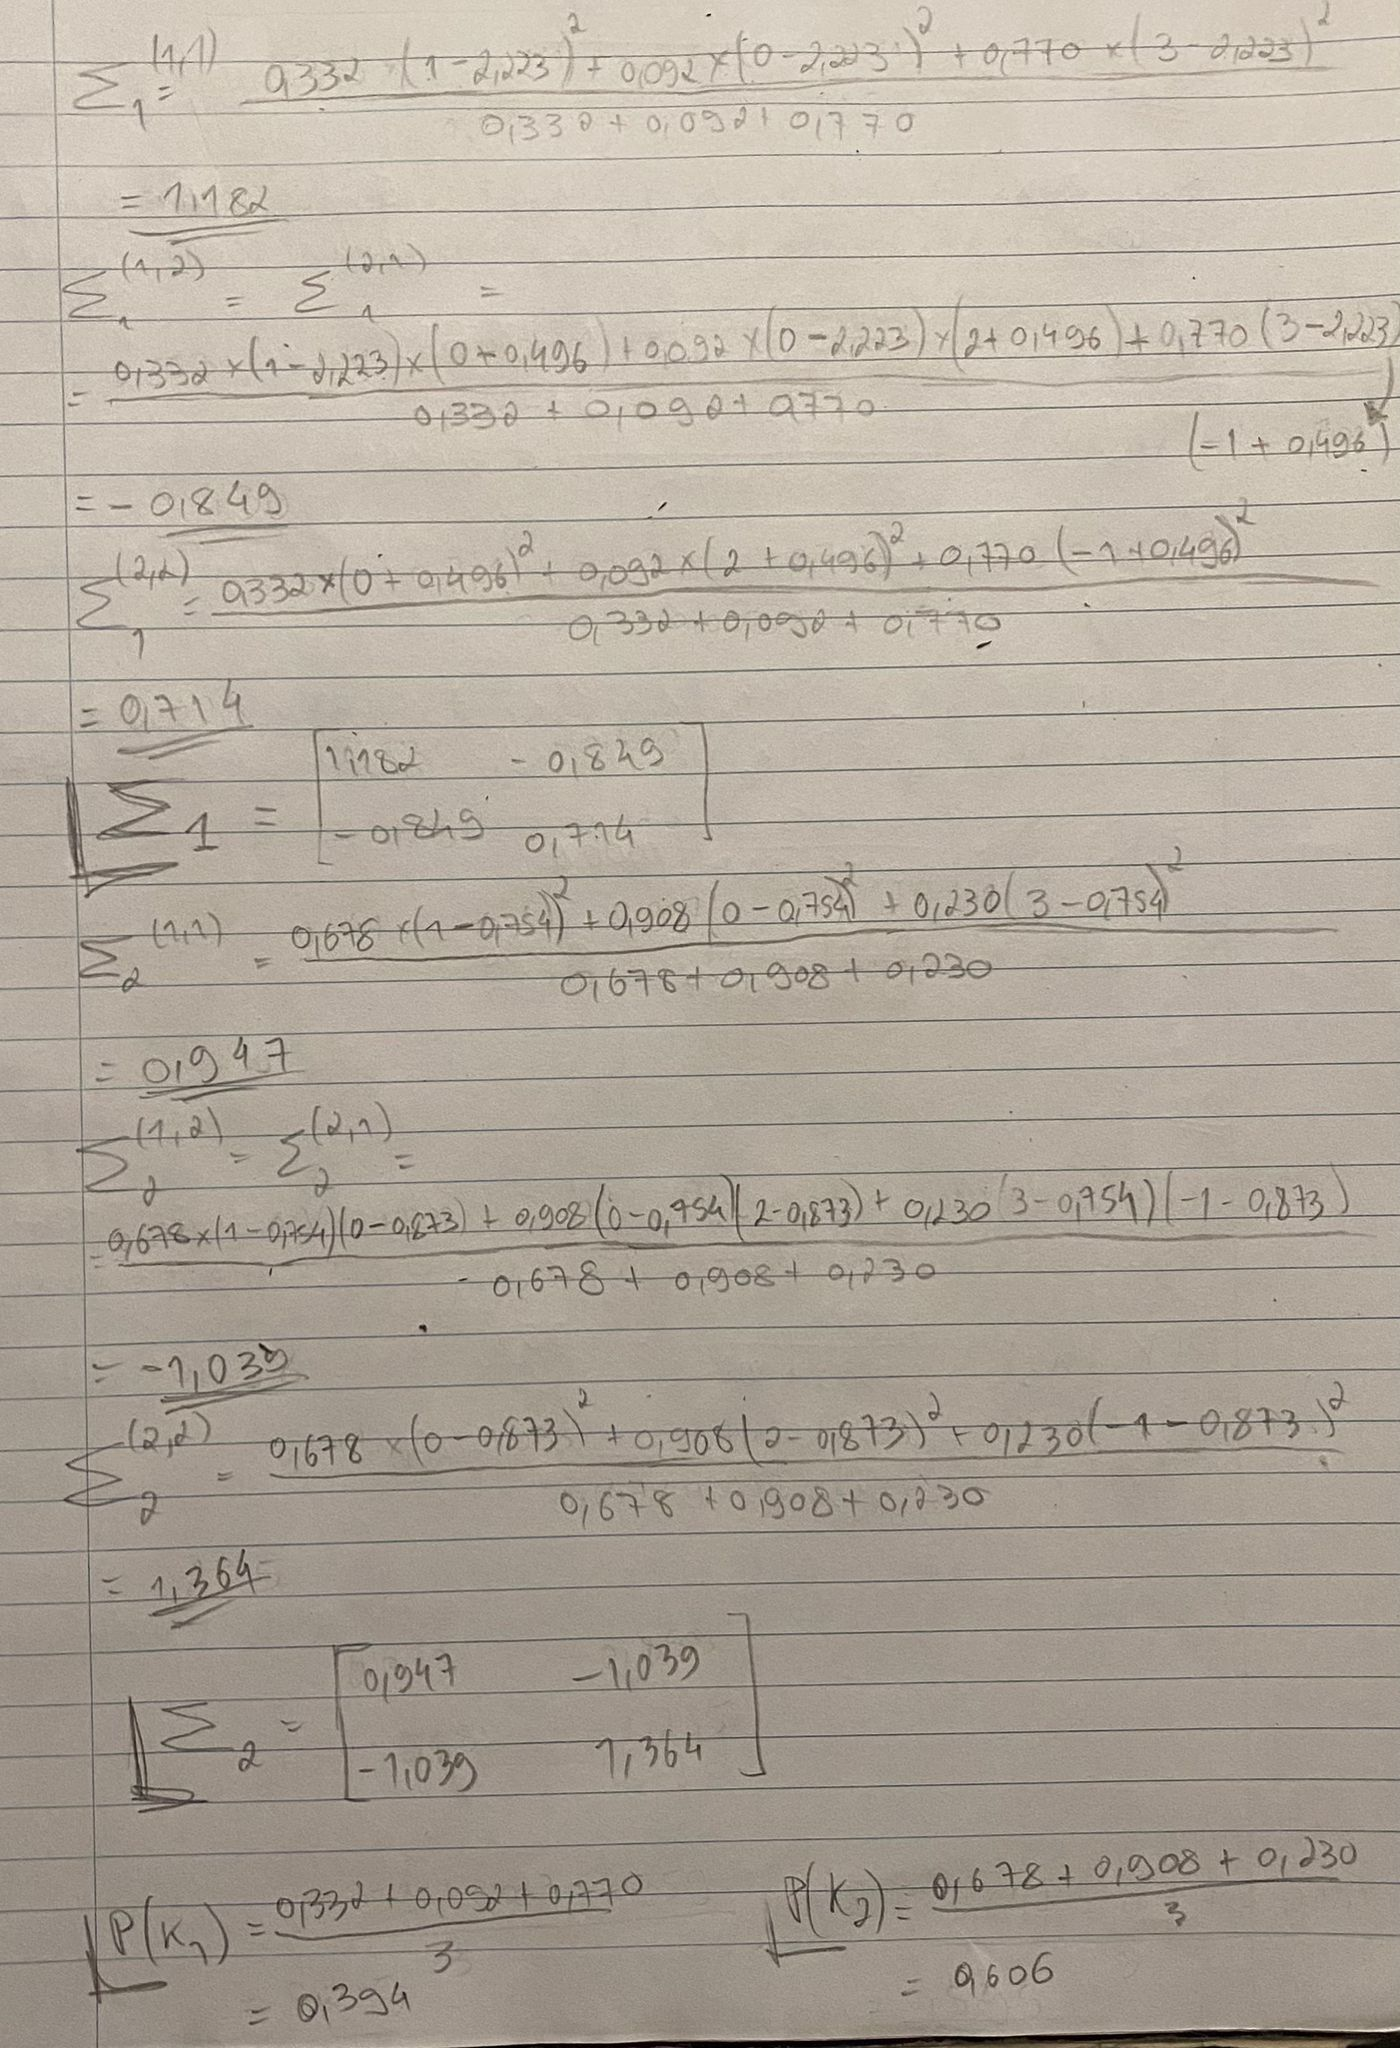 Σ₁^(1,1) = (0,332 (1-2,223)² + 0,092×(0-2,223)² + 0,770×(3-2,223)²) / (0,332+0,092+0,770)
= 1,182
Σ₁^(1,2) = Σ₁^(2,1) =
= (0,332×(1-2,223)×(0+0,496)+0,092×(0-2,223)×(2+0,496)+0,770(3-2,223)(-1+0,496)) / (0,332+0,092+0,770)
= -0,849
Σ₁^(2,2) = (0,332×(0+0,496)²+0,092×(2+0,496)²+0,770(-1+0,496)²) / (0,332+0,092+0,770)
= 0,714
Σ₁ = [1,182 -0,849
-0,849 0,714]
Σ₂^(1,1) = (0,678×(1-0,754)²+0,908(0-0,754)²+0,230(3-0,754)²) / (0,678+0,908+0,230)
= 0,947
Σ₂^(1,2) = Σ₂^(2,1) =
= (0,678×(1-0,754)(0-0,873)+0,908(0-0,754)(2-0,873)+0,230(3-0,754)(-1-0,873)) / (0,678+0,908+0,230)
= -1,039
Σ₂^(2,2) = (0,678×(0-0,873)²+0,908(2-0,873)²+0,230(-1-0,873)²) / (0,678+0,908+0,230)
= 1,364
Σ₂ = [0,947 -1,039
-1,039 1,364]
P(K₁) = (0,332+0,092+0,770) / 3 P(K₂) = (0,678+0,908+0,230) / 3
= 0,394 = 0,606